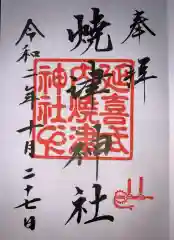 奉拝
焼津神社
延喜式
内焼津
神社之
令和二年十月二十七日